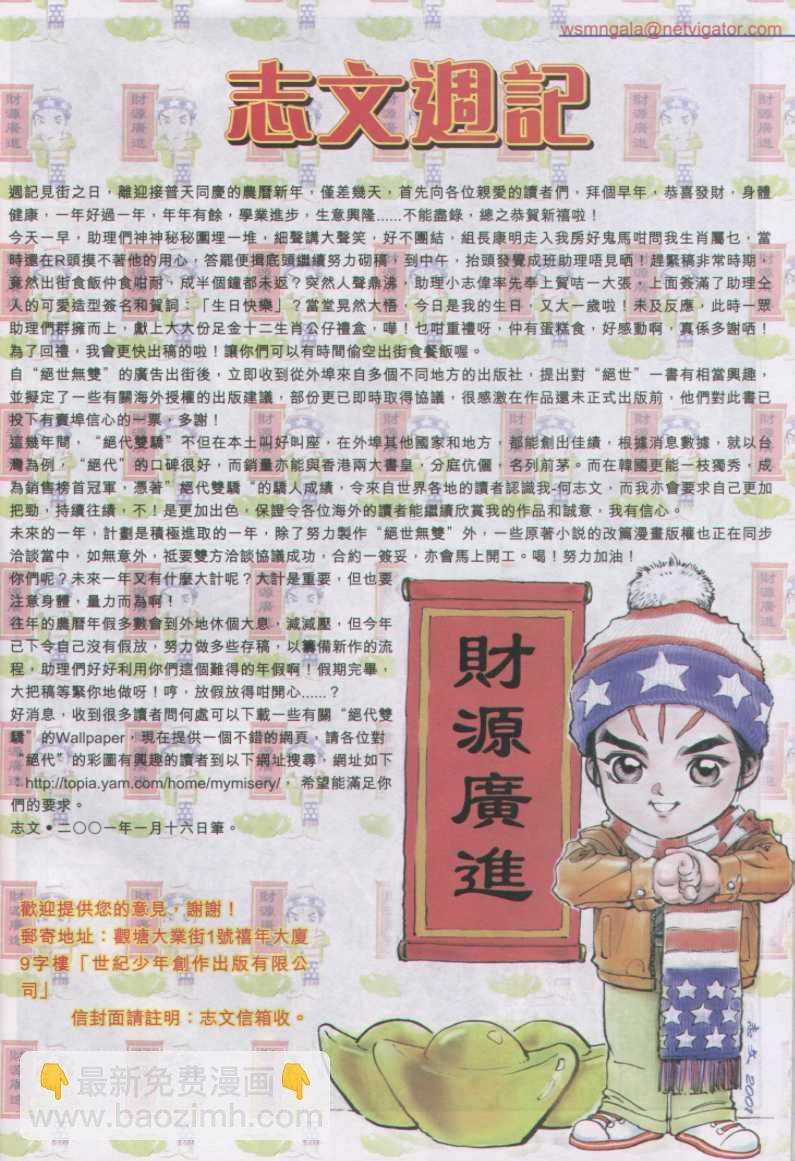 wsmngala@netvigator.com
志文週記
週記見街之日，離迎接普天同慶的農曆新年，僅差幾天，首先向各位親愛的讀者們，拜個早年，恭喜發財，身體
健康，一年好過一年，年年有餘，學業進步，生意興隆……不能盡錄，總之恭賀新禧啦！
今天一早，助理們神神秘秘圍埋一堆，細聲講大聲笑，好不團結，組長康明走入我房好鬼馬咁問我生肖屬乜，當
時還在R頭摸不著他的用心，答罷便揖底頭繼續努力砌稿，到中午，抬頭發覺成班助理唔見晒！趕緊稿非常時期，
竟然出街食飯仲食咁耐，成半個鐘都未返？突然人聲鼎沸，助理小志偉率先奉上賀咭一大張，上面簽滿了助理仝
人的可愛造型簽名和賀詞：「生日快樂」？當堂晃然大悟，今日是我的生日，又大一歲啦！未及反應，此時一眾
助理們群擁而上，獻上大大份足金十二生肖公仔禮盒，嘩！乜咁重禮呀，仲有蛋糕食，好感動啊，真係多謝晒！
為了回禮，我會更快出稿的啦！讓你們可以有時間偷空出街食餐飯喔。
自“絕世無雙”的廣告出街後，立即收到從外埠來自多個不同地方的出版社，提出對“絕世”一書有相當興趣，
並擬定了一些有關海外授權的出版建議，部份更已即時取得協議，很感激在作品還未正式出版前，他們對此書已
投下有賣埠信心的一票，多謝！
這幾年間，“絕代雙驕”不但在本土叫好叫座，在外埠其他國家和地方，都能創出佳績，根據消息數據，就以台
灣為例，“絕代”的口碑很好，而銷量亦能與香港兩大書皇，分庭伉儷，名列前茅。而在韓國更能一枝獨秀，成
為銷售榜首冠軍，憑著”絕代雙驕“的驕人成績，令來自世界各地的讀者認識我-何志文，而我亦會要求自己更加
把勁，持續往績，不！是更加出色，保證令各位海外的讀者能繼續欣賞我的作品和誠意，我有信心。
未來的一年，計劃是積極進取的一年，除了努力製作“絕世無雙”外，一些原著小說的改篇漫畫版權也正在同步
洽談當中，如無意外，祗要雙方洽談協議成功，合約一簽妥，亦會馬上開工。喝！努力加油！
你們呢？未來一年又有什麼大計呢？大計是重要，但也要
注意身體，量力而為啊！
往年的農曆年假多數會到外地休個大息，減減壓，但今年
已下令自己沒有假放，努力做多些存稿，以籌備新作的流
程，助理們好好利用你們這個難得的年假啊！假期完畢，
大把稿等緊你地做呀！哼，放假放得咁開心……？
好消息，收到很多讀者問何處可以下載一些有關“絕代雙
驕”的Wallpaper，現在提供一個不錯的網頁，請各位對
“絕代”的彩圖有興趣的讀者到以下網址搜尋，網址如下
：http://topia.yam.com/home/mymisery/， 希望能滿足你
們的要求。
志文•二〇〇一年一月十六日筆。
財
源
廣
進
歡迎提供您的意見，謝謝！
郵寄地址：觀塘大業街1號禧年大廈
9字樓「世紀少年創作出版有限公
司」
信封面請註明：志文信箱收。
志文 2001
👇最新免费漫画👇
www.baozimh.com